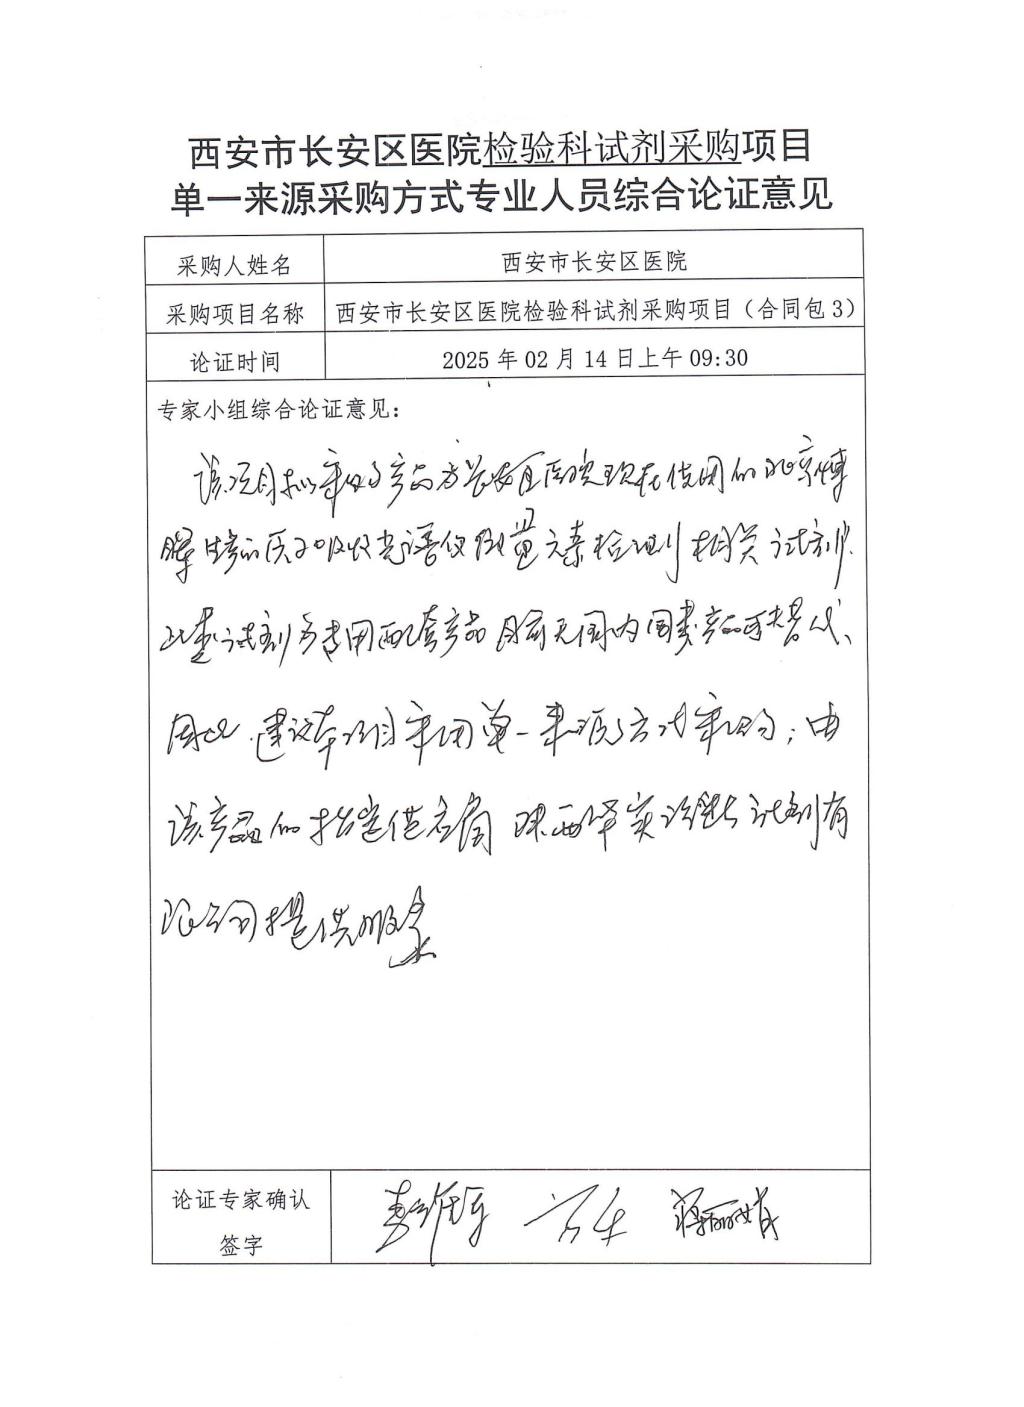 西安市长安区医院检验科试剂采购项目
单一来源采购方式专业人员综合论证意见
采购人姓名
西安市长安区医院
采购项目名称
西安市长安区医院检验科试剂采购项目（合同包3）
论证时间
2025年02月14日上午09:30
专家小组综合论证意见：
该项目拟采购产品为长安区医院现在使用的北京博
晖生产的原子吸收光谱仪微量元素检测相关试剂.
此类试剂为专用配套产品 目前无国内同类产品可替代、
因此.建议本项目采用单一来源方式采购；由
该产品的指定供应商 陕西 实 试剂有
限公司提供服务
论证专家确认
签字